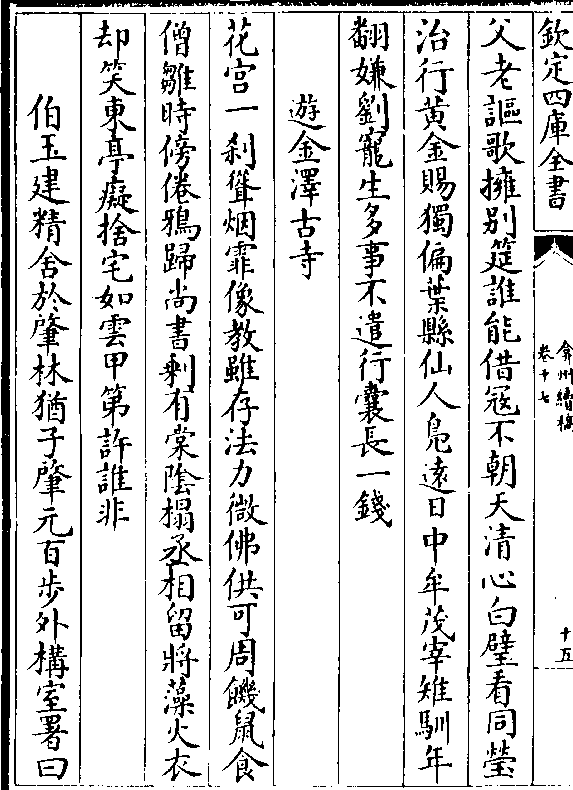 欽定四庫全書
弇州續稿
卷十七
十五
父老謳歌擁别筵誰能借冦不朝天清心白璧看同瑩
治行黄金賜獨偏葉縣仙人鳬遠日中牟茂宰雉馴年
翻嫌劉寵生多事不遣行囊長一錢
遊金澤古寺
花宫一刹聳烟霏像教雖存法力微佛供可周饑鼠食
僧雛時傍倦鴉歸尚書剩有棠陰搨丞相留將藻火衣
却笑東亭癡捨宅如雲甲第許誰非
伯玉建精舍於肇林猶子肇元百步外構室署曰